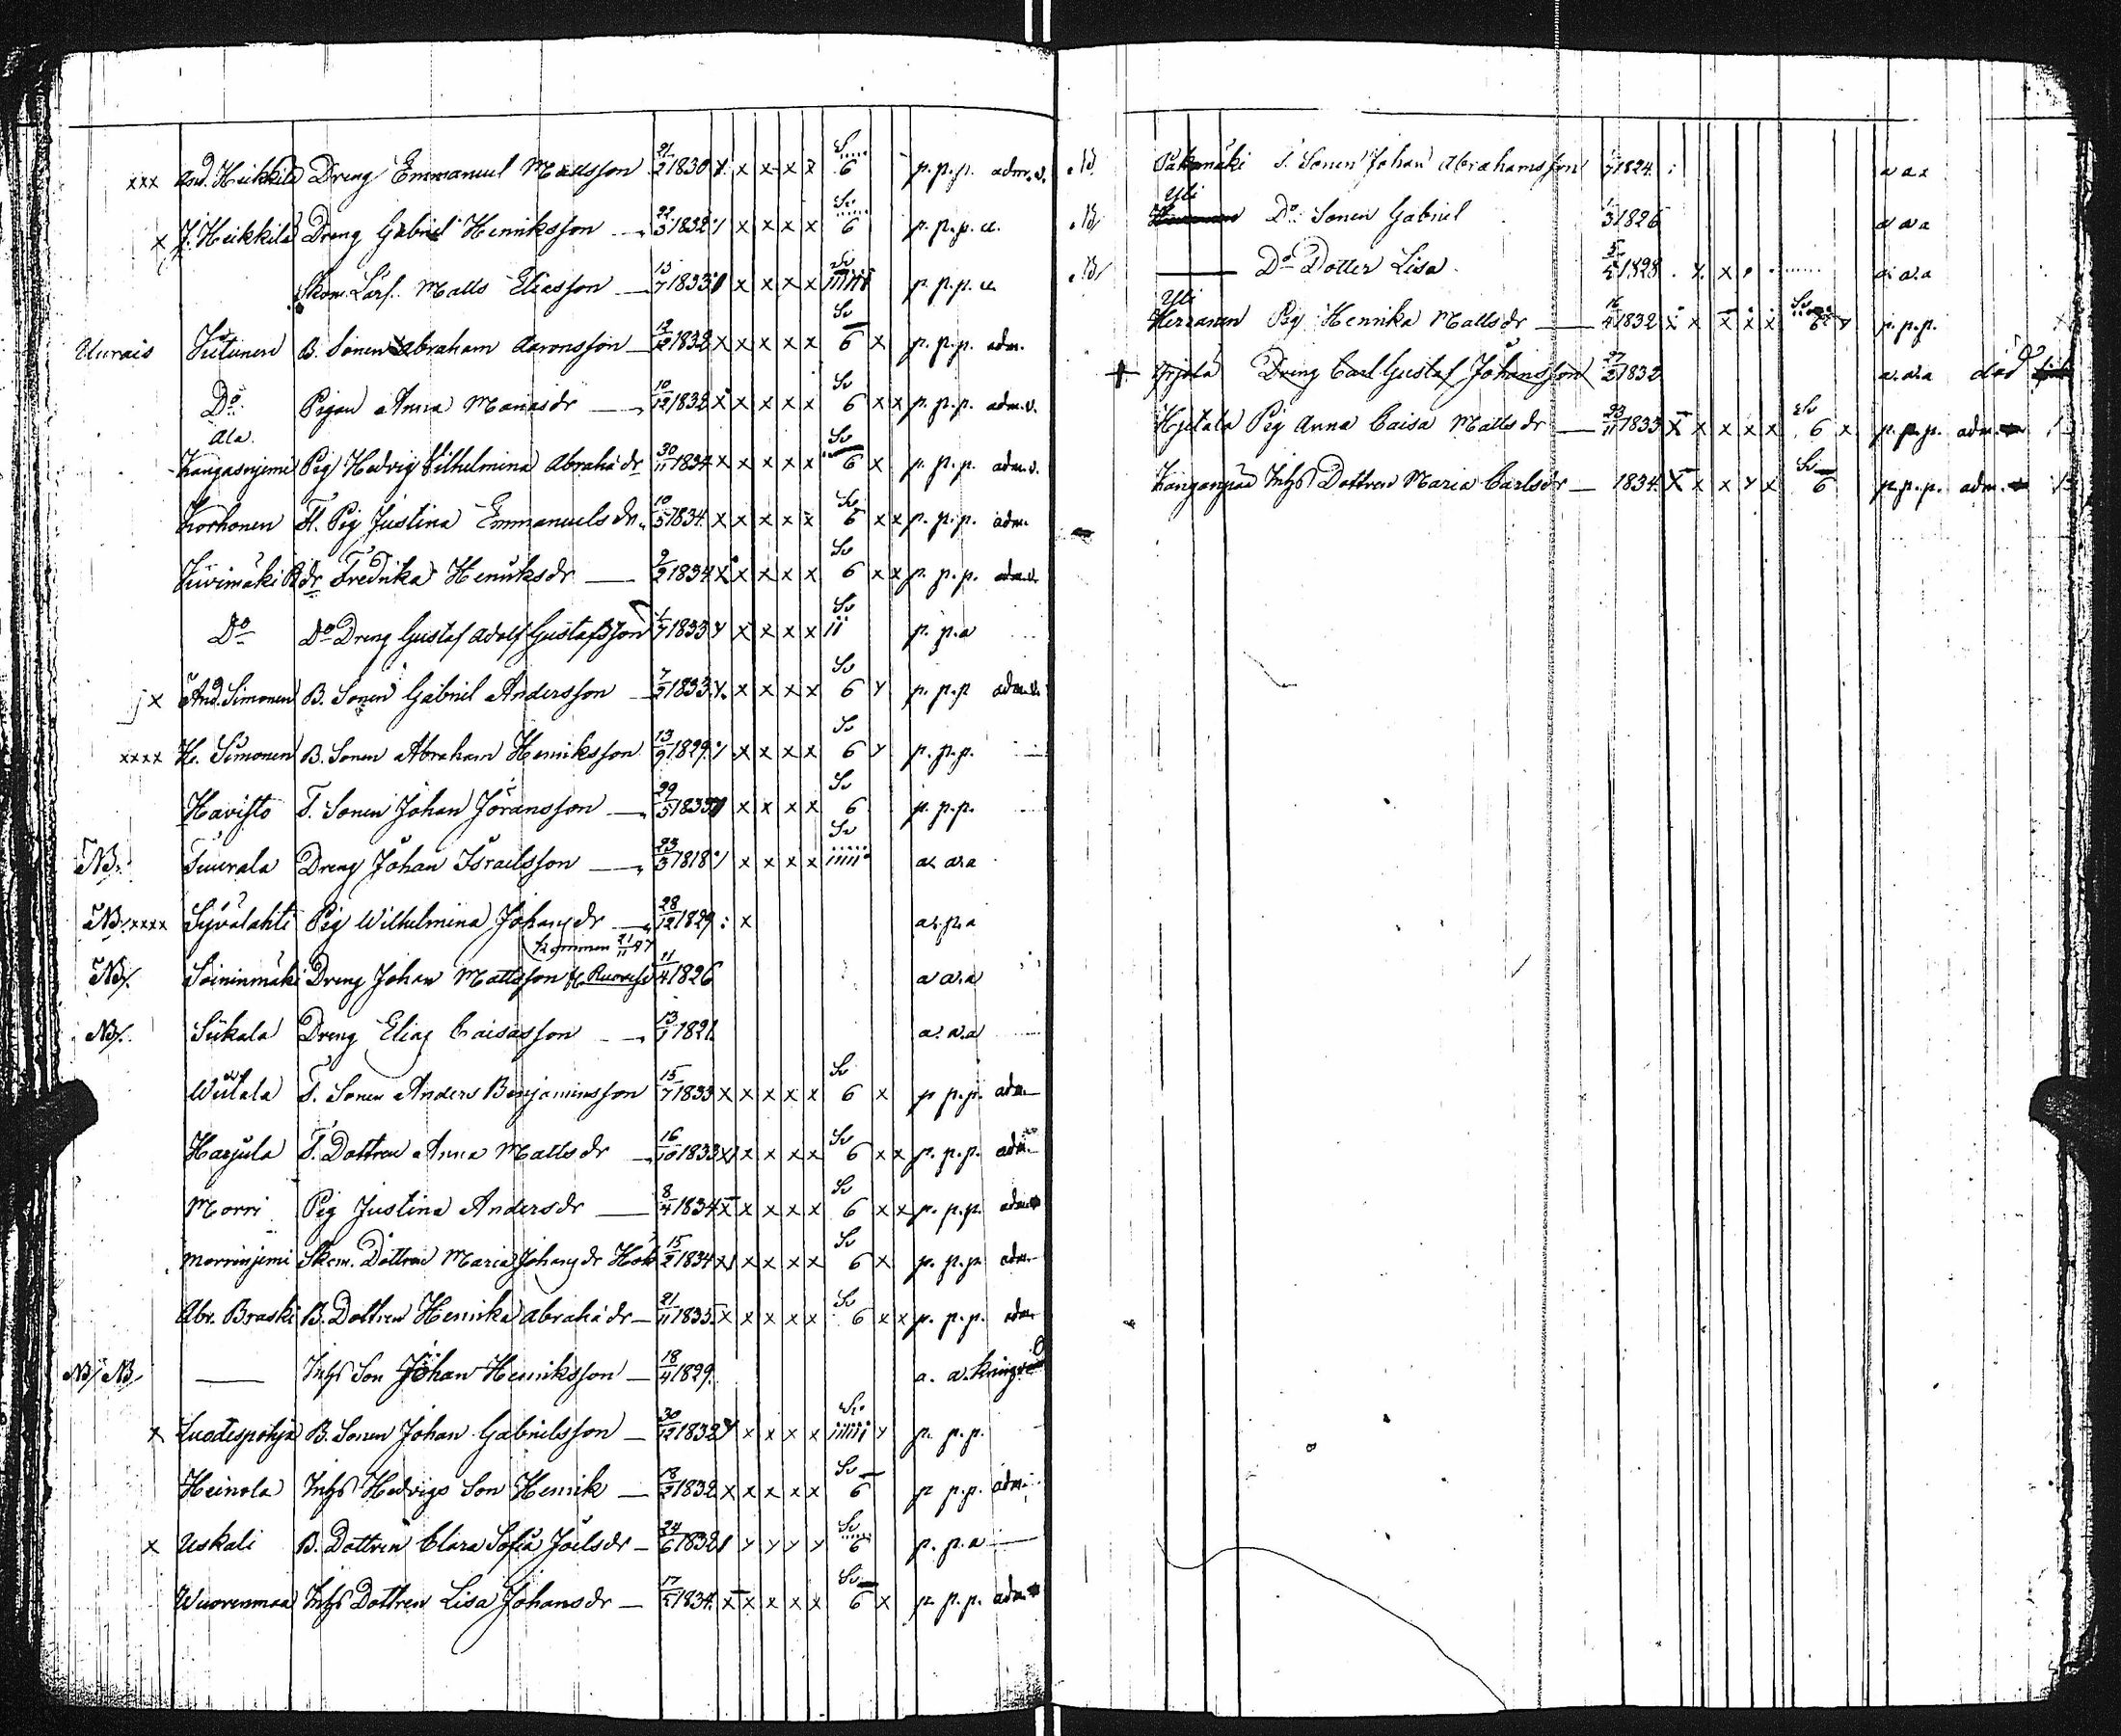 xxx And. Heikkilä Dreng Emmanuel Mattsson 21/2 1830 x x x x Sv 6 p. p. p. adm. v.
x J. Heikkilä Dreng Gabriel Henriksson 22/3 1832 x x x x Sv 6 p. p. p. a.
Skom. Lärl. Matts Eliasson 13/7 1833 x x x x Sv p. p. p. a
Uurais B. Sonen Abraham Aaronsson 1832 x x x x x Sv 6 x p. p. p. adm.
Do Pigan Anna Manasdr 10/12 1832 x x x x x Sv 6 x x p. p. p. adm. v.
Ala
Kangasniemi Pig Hedvig Vilhelmina Abrahadr 30/11 1834 x x x x x Sv 6 x p. p. p. adm. v.
Korhonen H. Pig Justina Emmanuelsdr 10/5 1834 x x x x x Sv 6 x x p. p. p. adm.
Kivimäki Bdr Fredrika Henriksdr 9/2 1834 x x x x x Sv 6 x x p. p. p. adm.
Do Do Dreng Gustaf Adolf Gustafsson 1/7 1833 x x x x x Sv ii p. p. a
jx And. Simonen B. Sonen Gabriel Andersson 7/3 1833 x x x x Sv 6 p. p. p adm. v.
xxxx H. Simonen B. Sonen Abraham Henriksson 13/9 1829 x x x x Sv 6 p. p. p.
Havisto T. Sonen Johan Jöransson 29/5 1833 x x x x Sv 6 p. p. p.
NB. Tuurala Dreng Johan Israelsson 23/3 1818 x x x x Sv a a a
NB. xxxx Syvälahti Pig Wilhelmina Johansdr 28/12 1829 : x a. p. a
Kommen 21/11 47
NB. Soininmäki Dreng Johan Mattsson fr. Ruovesi 11/4 1826 a a. a
NB. Siikala Dreng Elias Caisasson 13/7 1821 a. a. a
Wiitala T. Sonen Anders Benjaminsson 15/7 1833 x x x x x Sv 6 x p p. p. adm
Harjula T. Dottren Anna Mattsdr 16/10 1833 x x x x x Sv 6 x x p. p. p. adm
Morri Pig Justina Andersdr 8/4 1834 x x x x x Sv 6 x x p. p. p. adm
Morriniemi Skom. Dottren Maria Johansdr 15/2 1834 x x x x x Sv 6 x p. p. p adm
Abr. Braski B. Dottren Henrika Abrahadr 21/11 1835 x x x x x Sv 6 x x p. p. p. adm
NB NB — Inhs Son Johan Henriksson 18/4 1829 a. a.
x Luodespohja B. Sonen Johan Gabrielsson 30/12 1832 x x x x Sv iiiiii p. p. p.
Heinola Inhs Hedvigs Son Henrik 18/3 1832 x x x x x Sv 6 p p. p. adm.
x Uskali B. Dottren Clara Sofia Joelsdr 24/6 1832 Sv 6 p. p. a
Wuorenmaa Inhs Dottren Lisa Johansdr 17/5 1834 x x x x x Sv 6 x p. p. p. adm
T. Sonen Johan Abrahamsson 1824 : a a a
Yli Do Sonen Gabriel 1826 a a a
— Do Dotter Lisa 1828 x a a. a
Yli
Herranen Pig Henrika Mattsdr 16/4 1832 x x x x x Sv 6 p. p. p.
+ Dreng Carl Gustaf Johansson 27/2 1832 a. a. a död
Pig Anna Caisa Mattsdr 23/11 1833 x x x x x Sv 6 x p. p. p. adm.
Inhs Dottren Maria Carlsdr 1834 x x x x x Sv 6 p. p. p. adm.